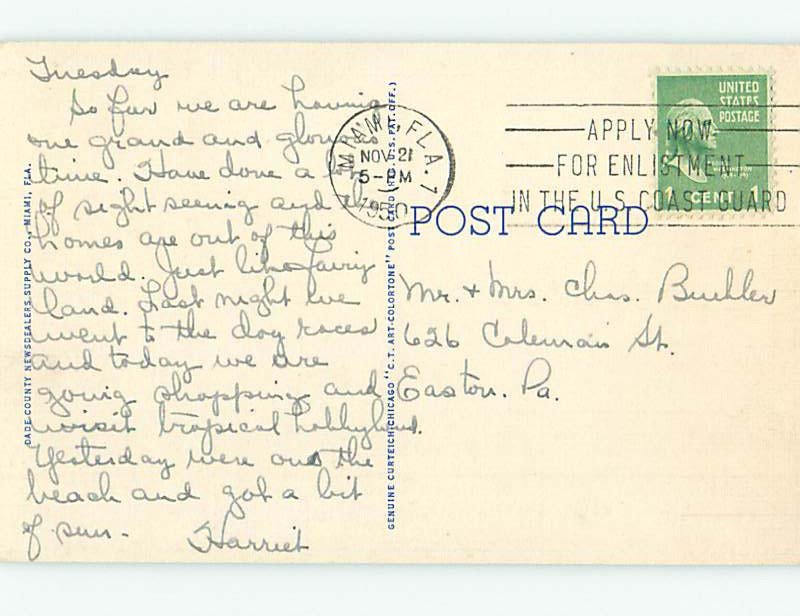 Tuesday
So far we are having
one grand and glorious
time. Have done a
of sight seeing and the
homes are out of this
world. Just like fairy
land. Last night we
went to the dog races
and today we are
going shopping and
visit tropical hobbyland.
Yesterday were out the
beach and got a bit
of sun. Harriet
DADE COUNTY NEWSDEALERS SUPPLY CO., MIAMI, FLA.
GENUINE CURTEICH-CHICAGO "C.T. ART-COLORTONE" POST CARD (REG. U.S. PAT. OFF.)
MIAMI, FLA. 7
NOV 21
5-PM
1950
APPLY NOW
FOR ENLISTMENT
IN THE U.S. COAST GUARD
UNITED
STATES
POSTAGE
WASHINGTON
1 CENT 1
POST CARD
Mr. + Mrs. Chas. Buehler
626 Coleman St.
Easton, Pa.